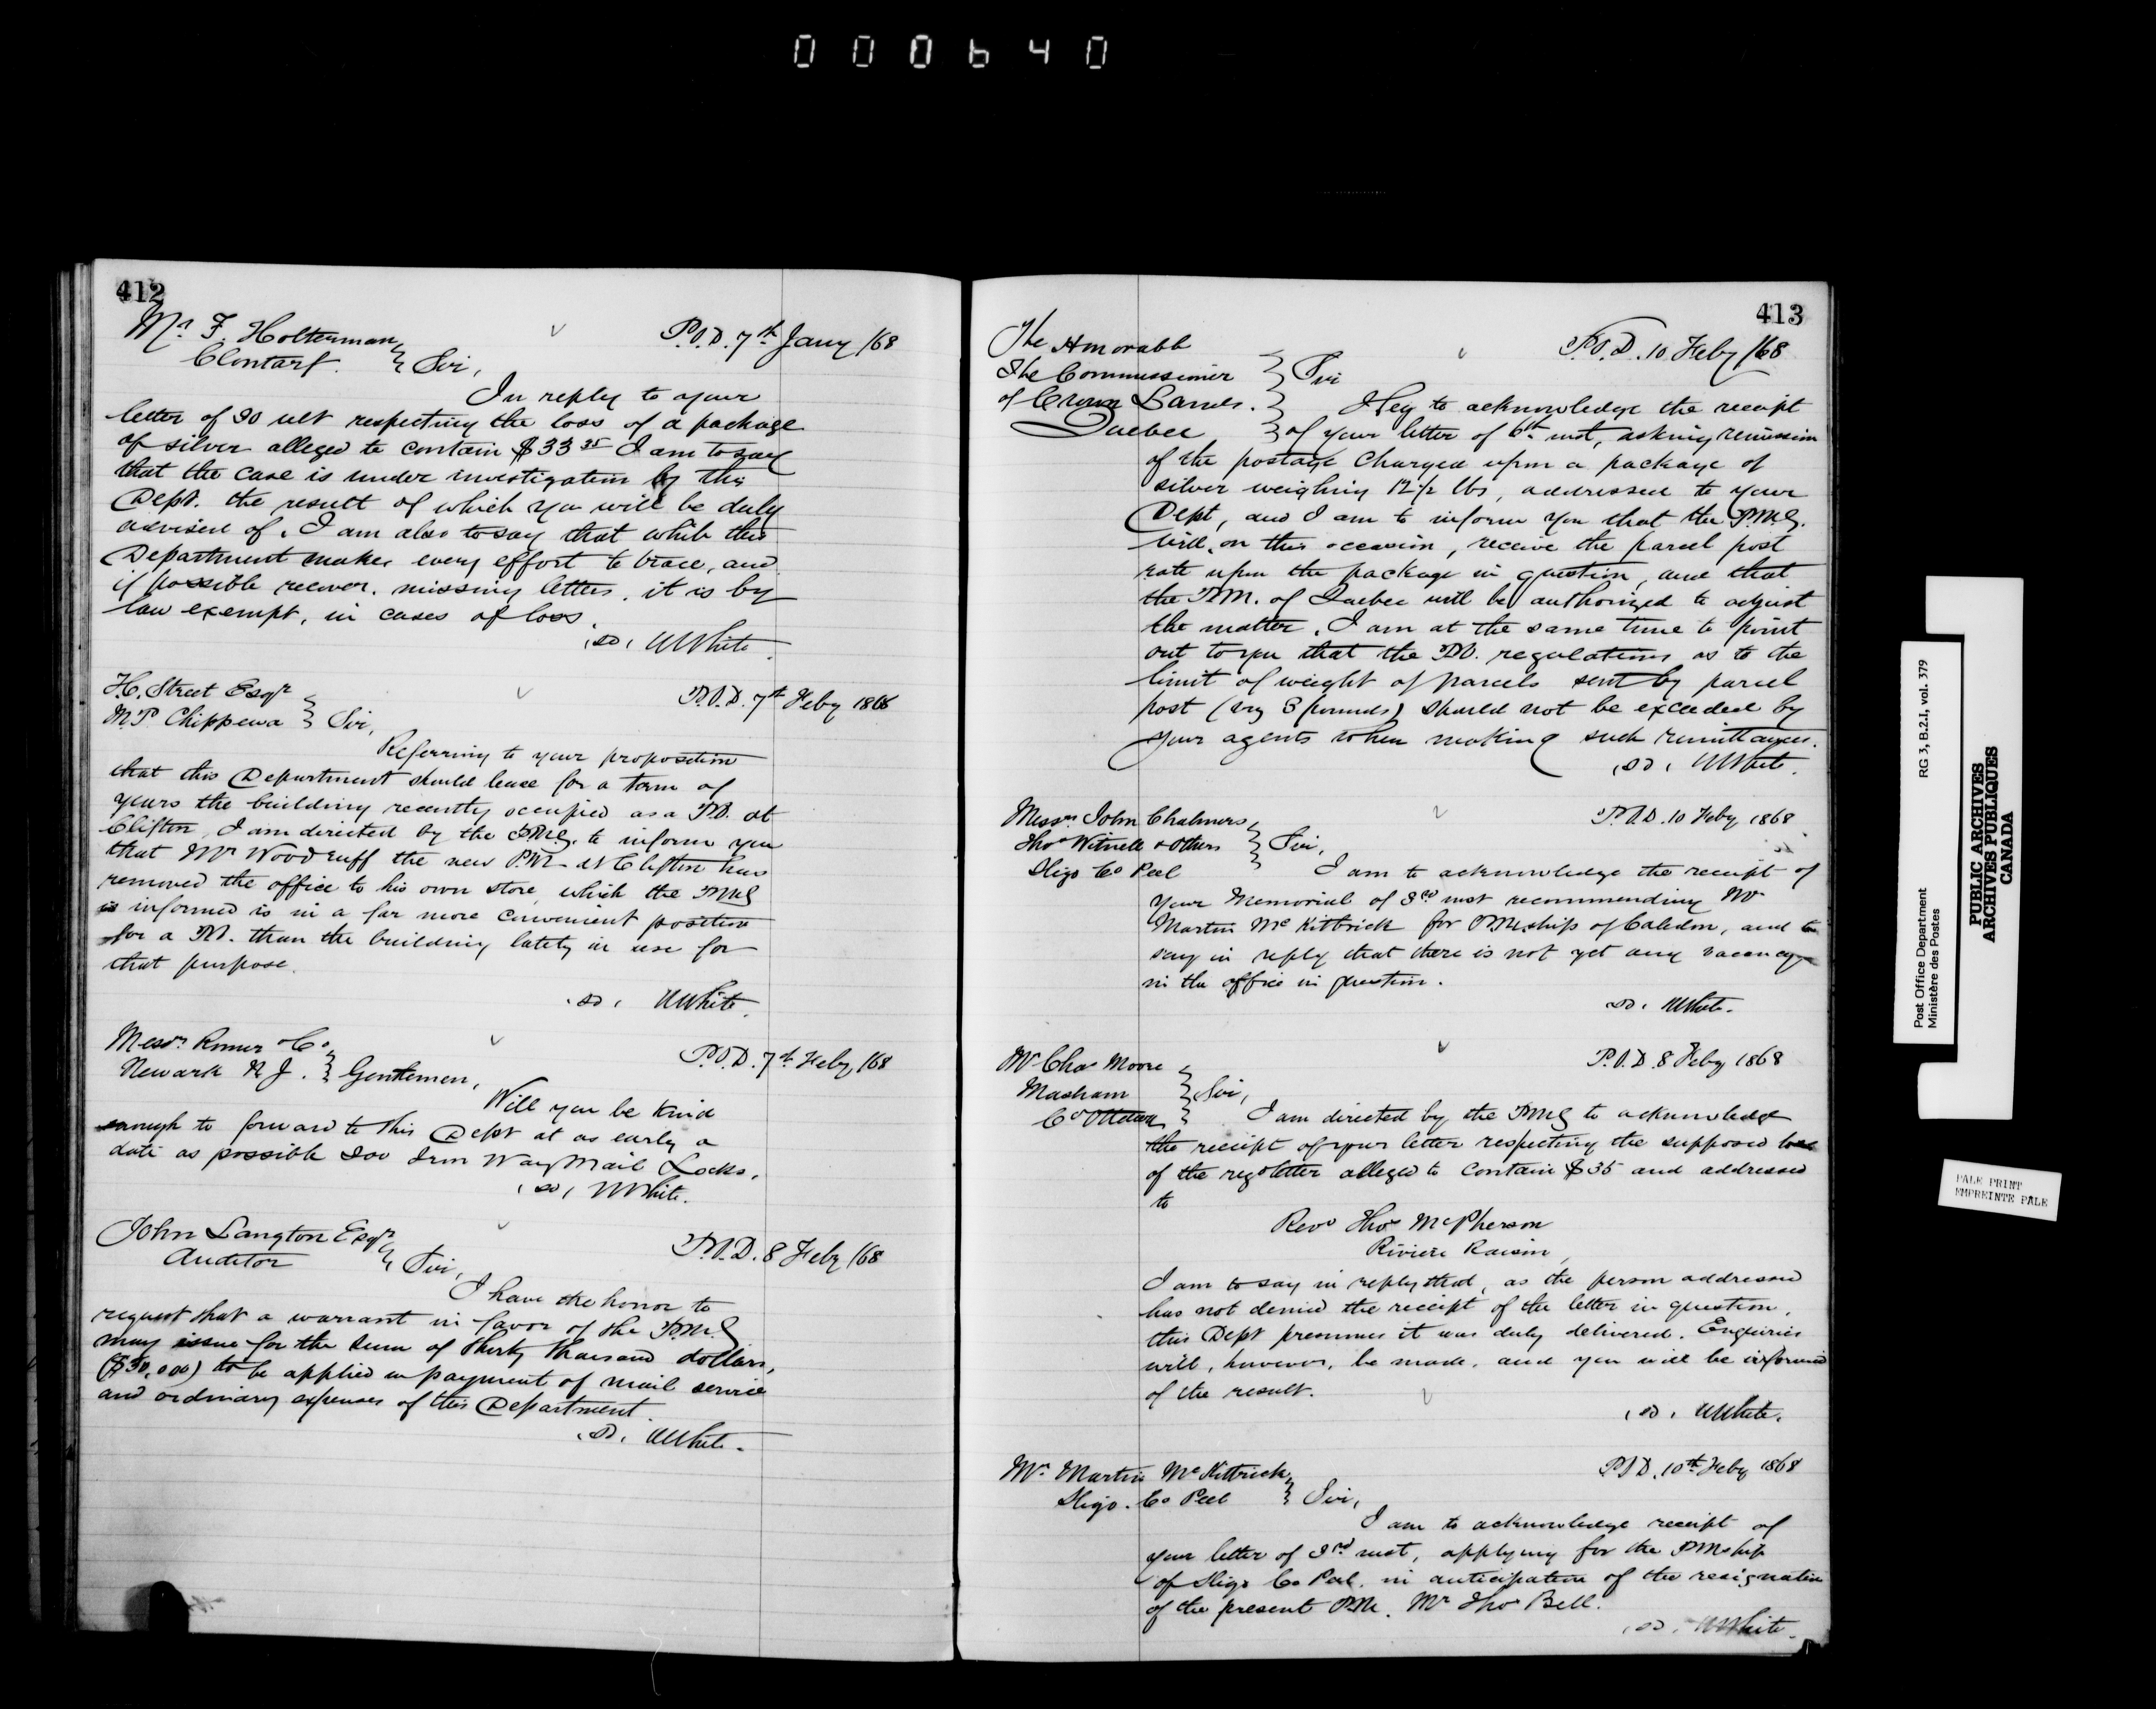 000640
412
Mr. F. Holterman
Clontarf. } Sir,
P.O.D. 7th Jany /68
In reply to your
letter of 30 ult respecting the loss of a package
of silver alleged to contain $33 35 I am to say
that the case is under investigation by this
Dept. the result of which you will be duly
advised of. I am also to say that while this
Department makes every effort to trace, and
if possible recover, missing letters, it is by
law exempt, in cases of loss.
(sd) W White.
H. Street Esqr
M.P. Chippewa } Sir,
P.O.D. 7th Feby 1868
Referring to your proposition
that this Department should lease for a term of
years the building recently occupied as a P.O. at
Clifton, I am directed by the P.M.G. to inform you
that Mr Woodruff the new P.M. at Clifton has
removed the office to his own store, which the PMG
is informed is in a far more convenient position
for a P.O. than the building lately in use for
that purpose.
(sd) W White.
Messrs Romer & Co.
Newark N J. } Gentlemen,
P.O.D. 7th Feby /68
Will you be kind
enough to forward to this Dept at as early a
date as possible 200 Iron Way Mail Locks.
(sd) W White.
John Langton Esqr
Auditor } Sir,
P.O.D. 8 Feby /68
I have the honor to
request that a warrant in favor of the P.M.G
may issue for the sum of thirty thousand dollars,
($30,000) to be applied in payment of mail service
and ordinary expenses of this Department.
(sd) W White.
413
The Honorable
The Commissioner
of Crown Lands.
Quebec } Sir
P.O.D. 10 Feby /68
I beg to acknowledge the receipt
of your letter of 6th inst, asking remission
of the postage charged upon a package of
silver weighing 12 1/2 lbs, addressed to your
Dept, and I am to inform you that the P.M.G.
will, on this occasion, receive the parcel post
rate upon the package in question, and that
the P.M. of Quebec will be authorized to adjust
the matter. I am at the same time to point
out to you that the P.O. regulations as to the
limit of weight of parcels sent by parcel
post (vizg 3 pounds) should not be exceeded by
your agents when making such remittances.
(sd) W White.
Messrs John Chalmers,
Thos Witnell & others
Sligo Co Peel } Sir,
P.O.D. 10 Feby 1868
I am to acknowledge the receipt of
your Memorial of 3rd inst recommending Mr
Martin McKittrick for P.Mship of Caledon, and to
say in reply that there is not yet any vacancy
in the office in question.
(sd) W White.
Mr Chas Moore
Masham
Co Ottawa } Sir,
P.O.D. 8 Feby 1868
I am directed by the PMG to acknowledge
the receipt of your letter respecting the supposed loss
of the regd letter alleged to contain $35 and addressed
to
Revd Thos McPherson
Riviere Raisin,
I am to say in reply that, as the person addressed
has not denied the receipt of the letter in question,
this Dept presumes it was duly delivered. Enquiries
will, however, be made, and you will be informed
of the result.
(sd) W White.
Mr. Martin McKittrick,
Sligo. Co Peel } Sir,
P.O.D. 10th Feby 1868
I am to acknowledge receipt of
your letter of 3rd inst, applying for the PMship
of Sligo Co Peel, in anticipation of the resignation
of the present P.M. Mr Thos Bell.
(sd) W White.
Post Office Department
Ministère des Postes
RG 3, B.2.I, vol. 379
PUBLIC ARCHIVES
ARCHIVES PUBLIQUES
CANADA
PALE PRINT
EMPREINTE PALE